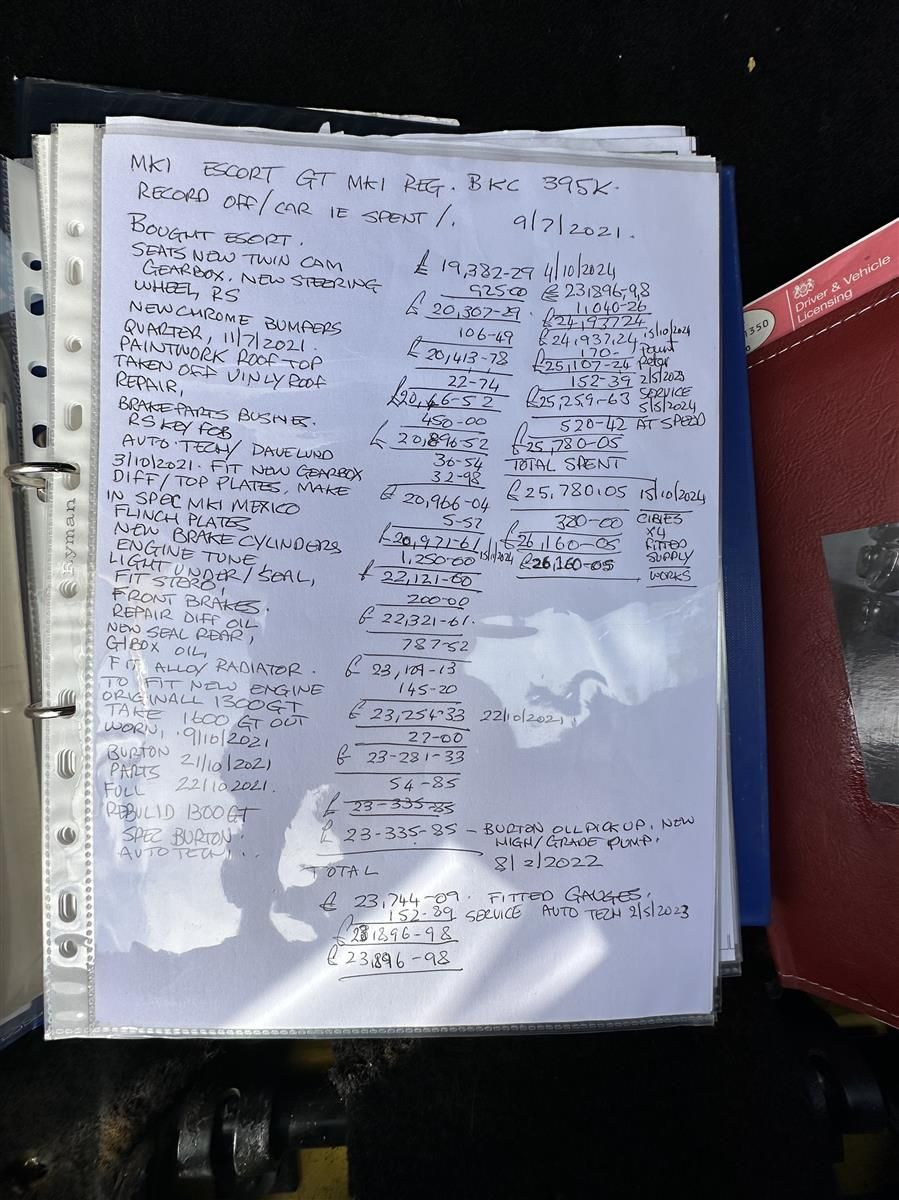 MKI ESCORT GT MKI REG. BKC 395K.
RECORD OFF/CAR IE SPENT/. 9/7/2021.
BOUGHT ESORT.
SEATS NEW TWIN CAM
GEARBOX. NEW STEERING
WHEEL, RS
NEW CHROME BUMPERS
QUARTER, 11/7/2021.
PAINTWORK ROOF TOP
TAKEN OFF VINLY ROOF
REPAIR,
BRAKE PARTS BUSINES.
RS KEY FOB
AUTO TECH/ DAVE LUND
3/10/2021. FIT NEW GEARBOX
DIFF/TOP PLATES, MAKE
IN SPEC MKI MEXICO
FLINCH PLATES
NEW BRAKE CYLINDERS
ENGINE TUNE
LIGHT UNDER/SEAL,
FIT STERO,
FRONT BRAKES.
REPAIR DIFF OIL
NEW SEAL REAR,
G/BOX OIL,
FIT ALLOY RADIATOR.
TO FIT NEW ENGINE
ORIGINALL 1300GT
TAKE 1600 GT OUT
WORN, 9/10/2021
BURTON 21/10/2021
PARTS
FULL 22/10 2021.
REBUILD 1300GT
SPEC BURTON.
AUTO TECH...
£ 19,382-29
925-00
£ 20,307-29
106-49
£ 20,413-78
22-74
450-00
£ 20,896-52
36-54
32-98
£ 20,966-04
5-57
£ 20,971-61
1,250-00
£ 22,121-60
200-00
£ 22,321-61.
787-52
£ 23,109-13
145-20
£ 23,254-33 22/10/2021,
27-00
£ 23-281-33
54-85
£ 23-335-85
£ 23-335-85 - BURTON OIL PICK UP, NEW
HIGH/GRADE PUMP.
TOTAL 8/2/2022
£ 23,744-09. FITTED GAUGES.
152-89 SERVICE AUTO TECH 2/5/2023
£ 23,896-98
£ 23,896-98
4/10/2024
£ 23,896,98
1,040-26
£ 24,937 24
£ 24,937,24 15/10/2024
170- Paint
£ 25,107-24 Peter
152-39 2/5/2023
£ 25,259-63 SERVICE
5/5/2024
520-42 AT SPEED
£ 25,780-05
TOTAL SPENT
£ 25,780.05 15/10/2024
380-00 CIBIES
X4
£ 26,160-05 FITTED
SUPPLY
£ 26,160-05
WORKS
Ryman
Driver & Vehicle
Licensing
1350